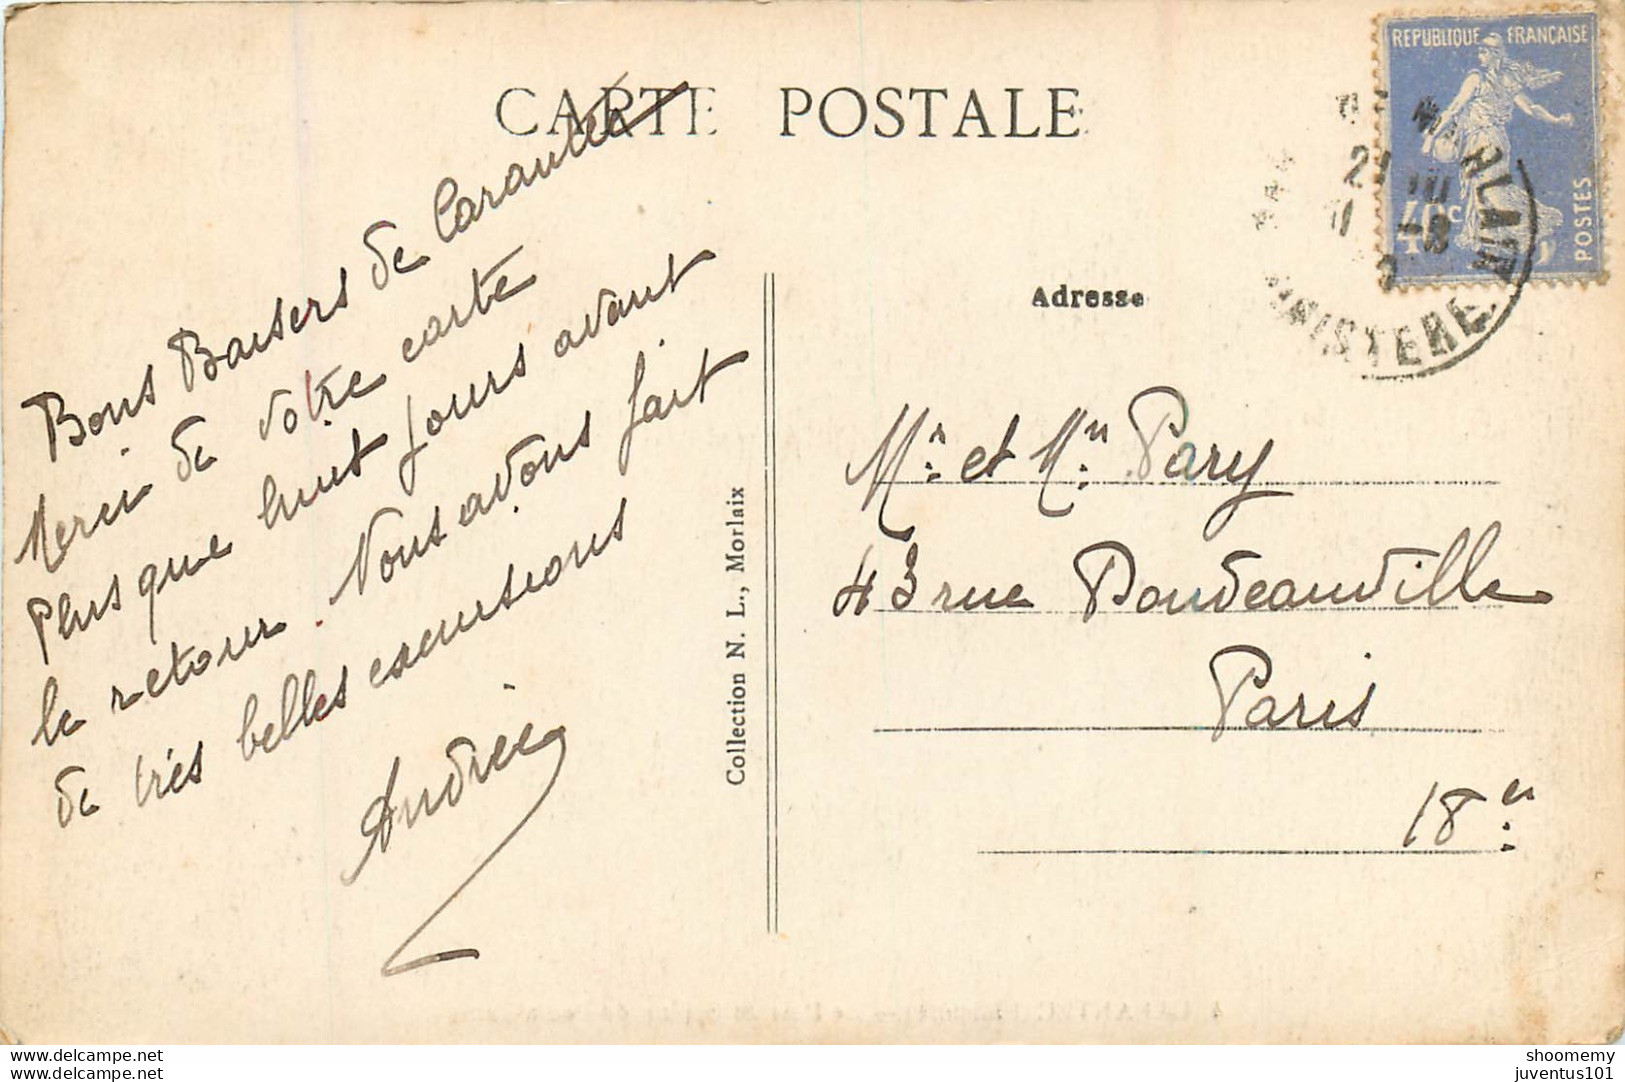 CARTE POSTALE
REPUBLIQUE FRANÇAISE
40c
POSTES
MORLAIX
FINISTERE
Bons Baisers de Carantec
Merci de votre carte
Plus que huit jours avant
le retour. Nous avons fait
de très belles excursions
Andrée
Collection N. L., Morlaix
Adresse
Mr. et Mm. Pary
43 rue Doudeauville
Paris
18e.
delcampe.net
delcampe.net
shoomemy
juventus101